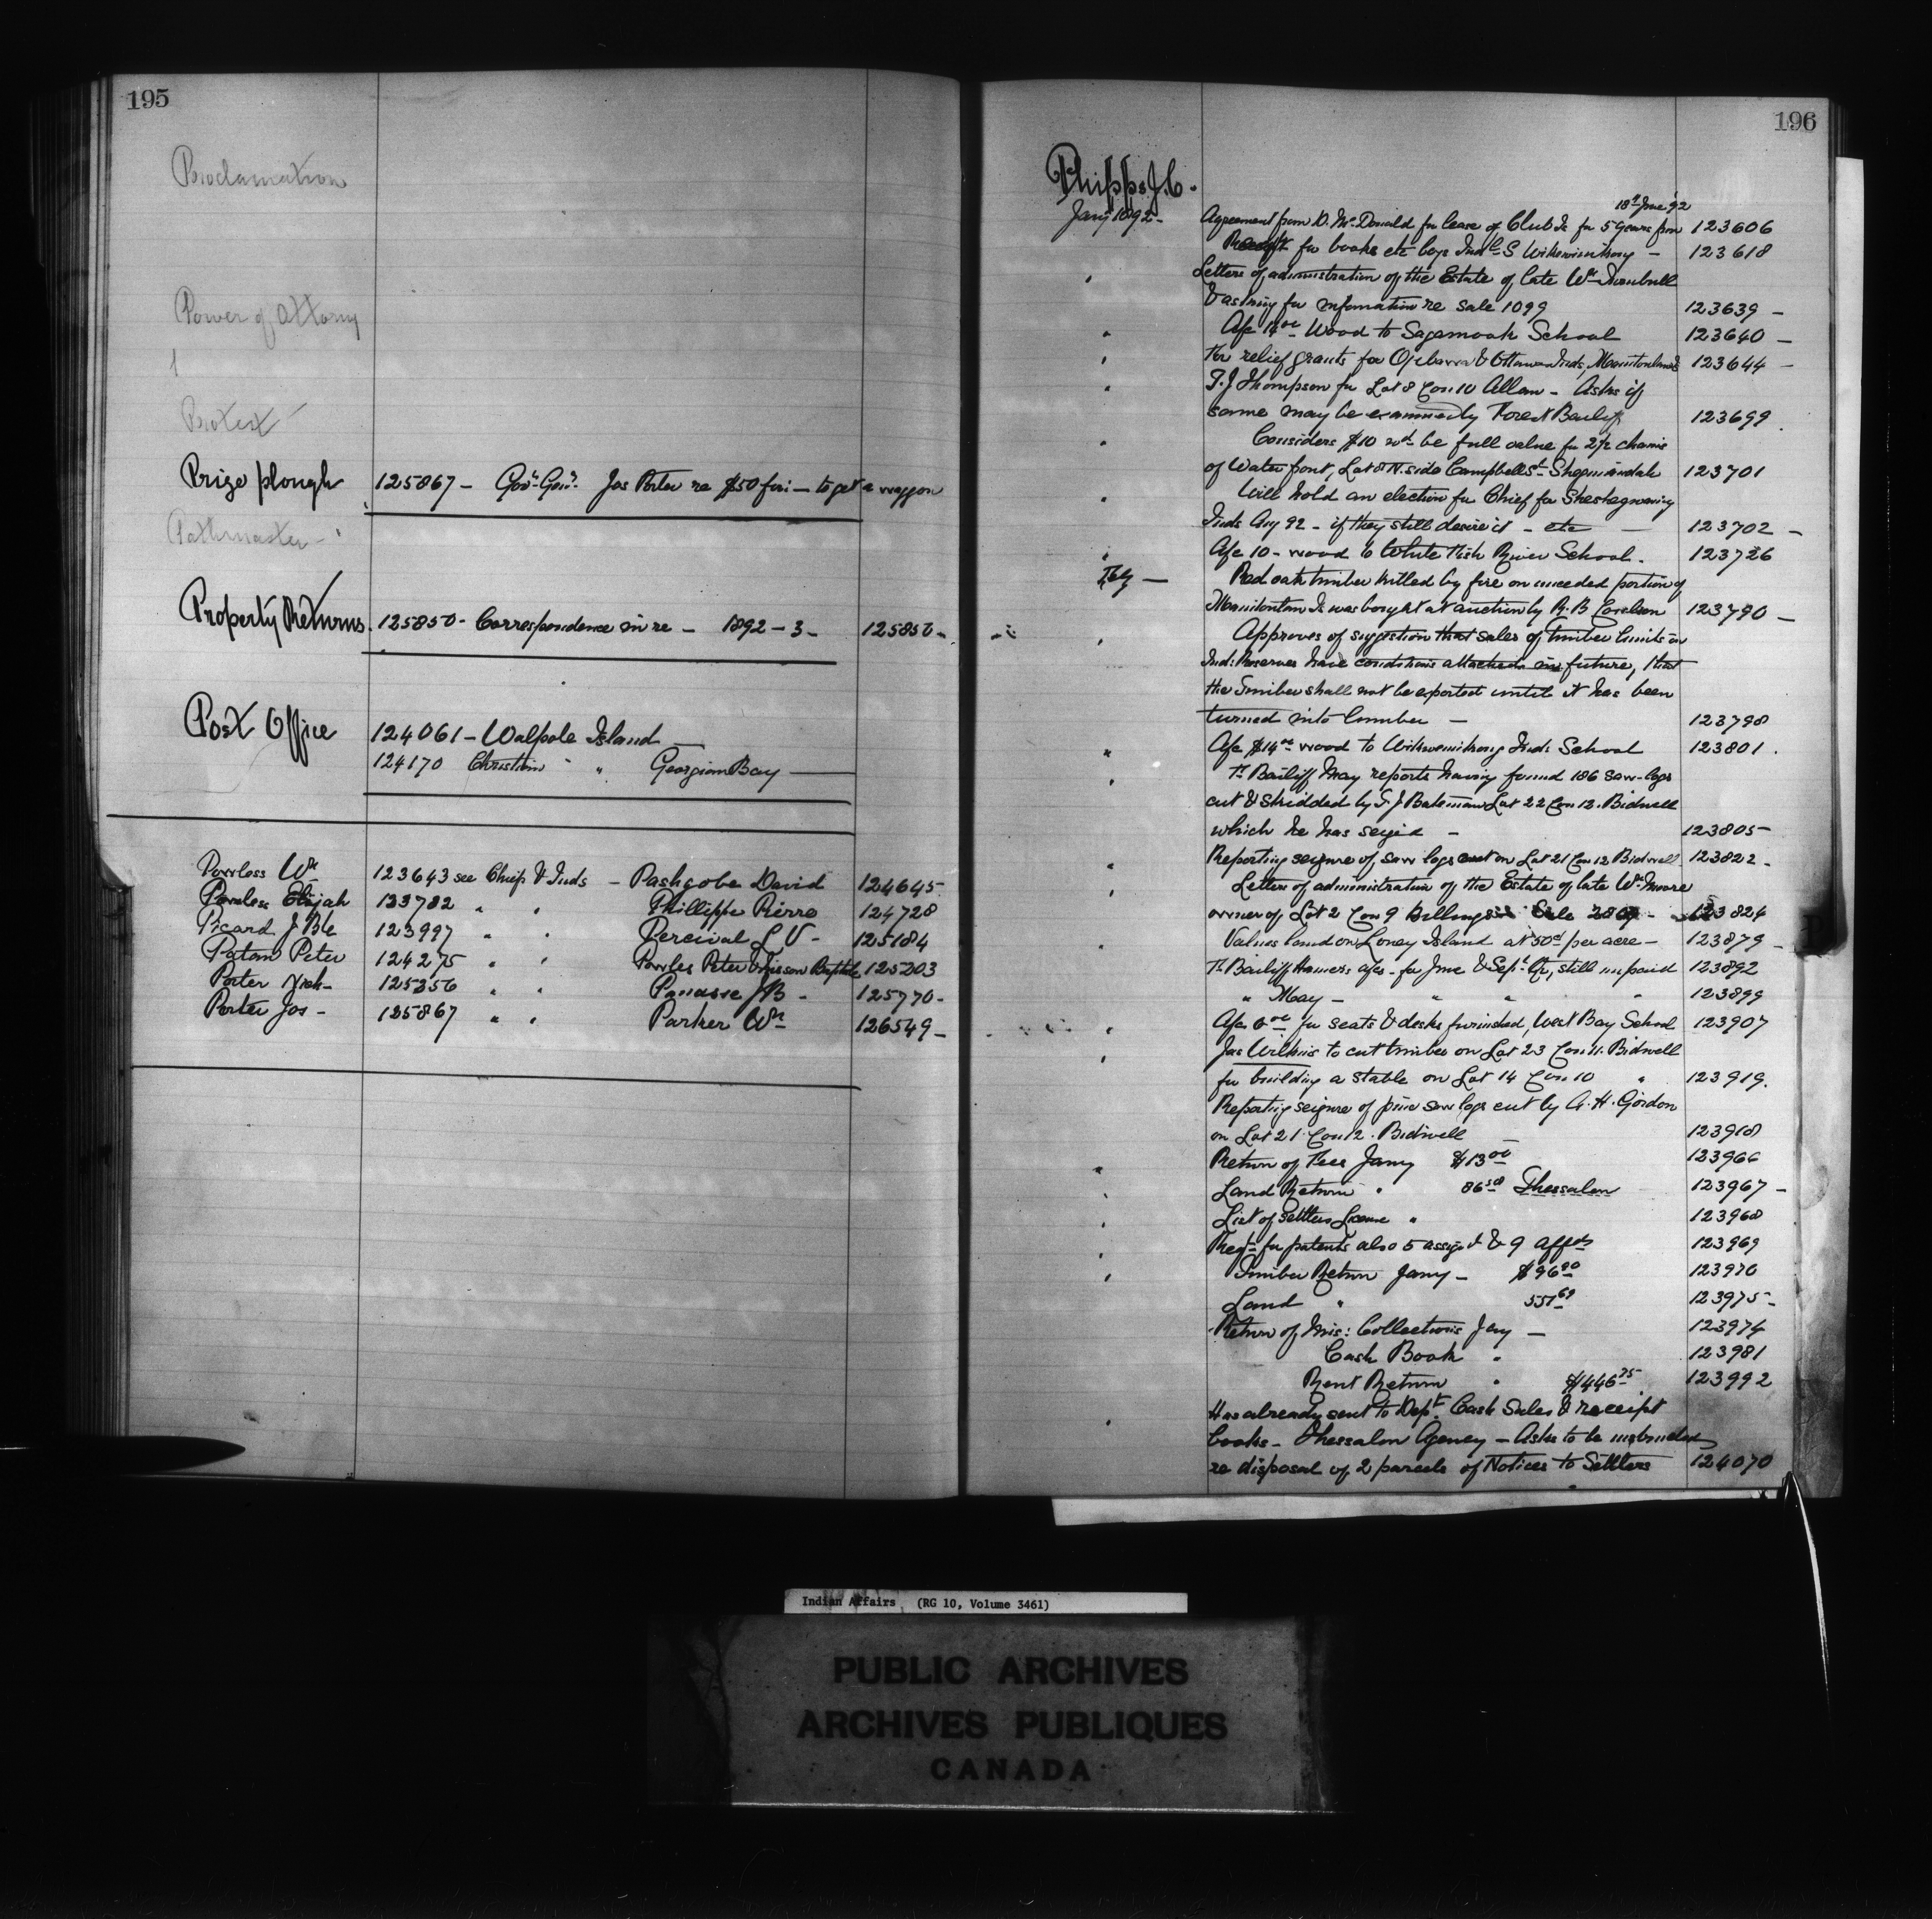 195
Proclamation
Power of Attorney
1
Protest
Prize plough 125867 – Gov. Gen. Jas Porter re $50 for – to get a waggon
Pathmaster –
Property Returns. 125850 – Correspondence in re – 1892 – 3 – 125850 –
Post Office
124061 – Walpole Island –
124170 Christian " " Georgian Bay –
Powless Wm 123643 see Chief & Inds – Pashgobe David 124645
Powless Elijah 123782 " " Phillippe Pierre 124728
Picard J Bte 123997 " " Percival L V – 125184
Patam Peter 124275 " " Powles Peter & Baptiste 125203
Porter Nich – 125356 " " Panasse J B – 125770 –
Porter Jos – 125867 " " Parker Wm 126549 –
196
Phipps J. C.
Jany 1892 –
18th June '92
Agreement from D. McDonald for lease of Club Is for 5 years from 123606
Receipt for books etc boys Indl S Wikwemikong – 123618
Letters of administration of the Estate of late Wm Turnbull
& asking for information re sale 1099 123639 –
Afc 14 00 Wood to Sagamook School 123640 –
For relief grants for Ojibewa & Ottawa Inds, Manitoulin Is 123644 –
T. J Thompson for Lot 8 Con 10 Allan – Asks if
same may be examined by Forest Bailiff 123699
Considers $10 wd be full value for 2½ chains
of Water front, Lot 8 N. side Campbell St Shegmiandah 123701
Will hold an election for Chief for Sheshegwaning
Inds Aug 92 – if they still desire it – etc – 123702 –
Afc 10 – wood to White Fish River School. 123726
Tely – Red oak timber killed by fire on unceded portion of
Manitoulin Is was bought at auction by R. B 123790 –
Approves of suggestion that sales of timber limits on
Ind: Reserves have conditions attached in future, that
the timber shall not be exported until it has been
turned into lumber – 123798
Afc $14 00 wood to Wikwemikong Ind: School 123801.
Ft Bailiff May reports having found 186 saw-logs
cut & skidded by T. J Bateman Lot 22 Con 12. Bidwell
which he has seized – 123805 –
Reporting seizure of saw logs cut on Lot 21 Con 12 Bidwell 123822 –
Letters of administration of the Estate of late Wm Moore
owner of Lot 2 Con 9 Billings Sale – 123824
Values land on Loney Island at 50¢ per acre – 123879 –
Ft Bailiff Hamers afcs – for June & Sept Qr, still unpaid 123892
" May – " " " 123899
Afc 6 00 for seats & desks furnished, West Bay School 123907
Jas Wilkins to cut timber on Lot 23 Con 11. Bidwell
for building a stable on Lot 14 Con 10 " 123919.
Reporting seizure of pine saw logs cut by A. H. Gordon
on Lot 21 Con 12. Bidwell – 123918
Return of Fees Jany $13 00 123966
Land Return " 86 58 Thessalon 123967 –
List of Settlers License " 123968
Reqn for patents also 5 assigt & 9 affdts 123969
Timber Return Jany – $96 90 123970
Land " 551 69 123975 –
Return of Mis: Collections Jany – 123974
Cash Book " 123981
Rent Return " $1446 75 123992
Has already sent to Dept. Cash Sales & receipt
books – Thessalon Agency – Asks to be instructed
re disposal of 2 parcels of Notices to Settlers 124070
Indian Affairs (RG 10, Volume 3461)
PUBLIC ARCHIVES
ARCHIVES PUBLIQUES
CANADA